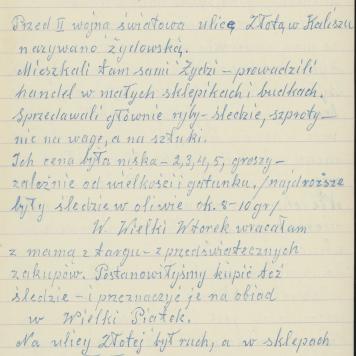 Przed II wojna światowa ulicę Złotą w Kaliszu
nazywano żydowską.
Mieszkali tam sami Żydzi – prowadzili
handel w małych sklepikach i budkach.
Sprzedawali głównie ryby – śledzie, szproty –
nie na wagę, a na sztuki.
Ich cena była niska – 2, 3, 4, 5, groszy –
zależnie od wielkości i gatunku, /najdroższe
były śledzie w oliwie ok. 8-10 gr/
W Wielki Wtorek wracałam
z mamą z targu – z przedświątecznych
zakupów. Postanowiłyśmy kupić też
śledzie – i przeznaczyć je na obiad
w Wielki Piątek.
Na ulicy Złotej był ruch, a w sklepach